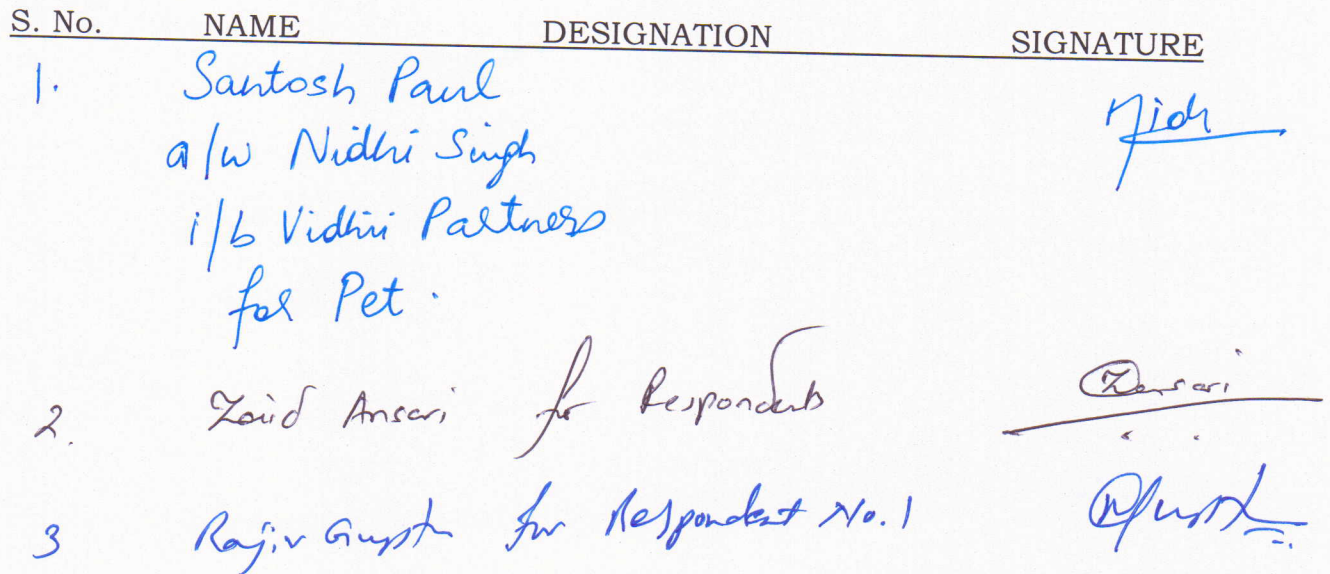 S. No. NAME DESIGNATION SIGNATURE
1. Santosh Paul Nidhi
a/w Nidhi Singh
i/b Vidhii Partners
for Pet.
2. Zaid Ansari for Respondents ZAnsari
3 Rajiv Gupta for Respondent No. 1 RGupta